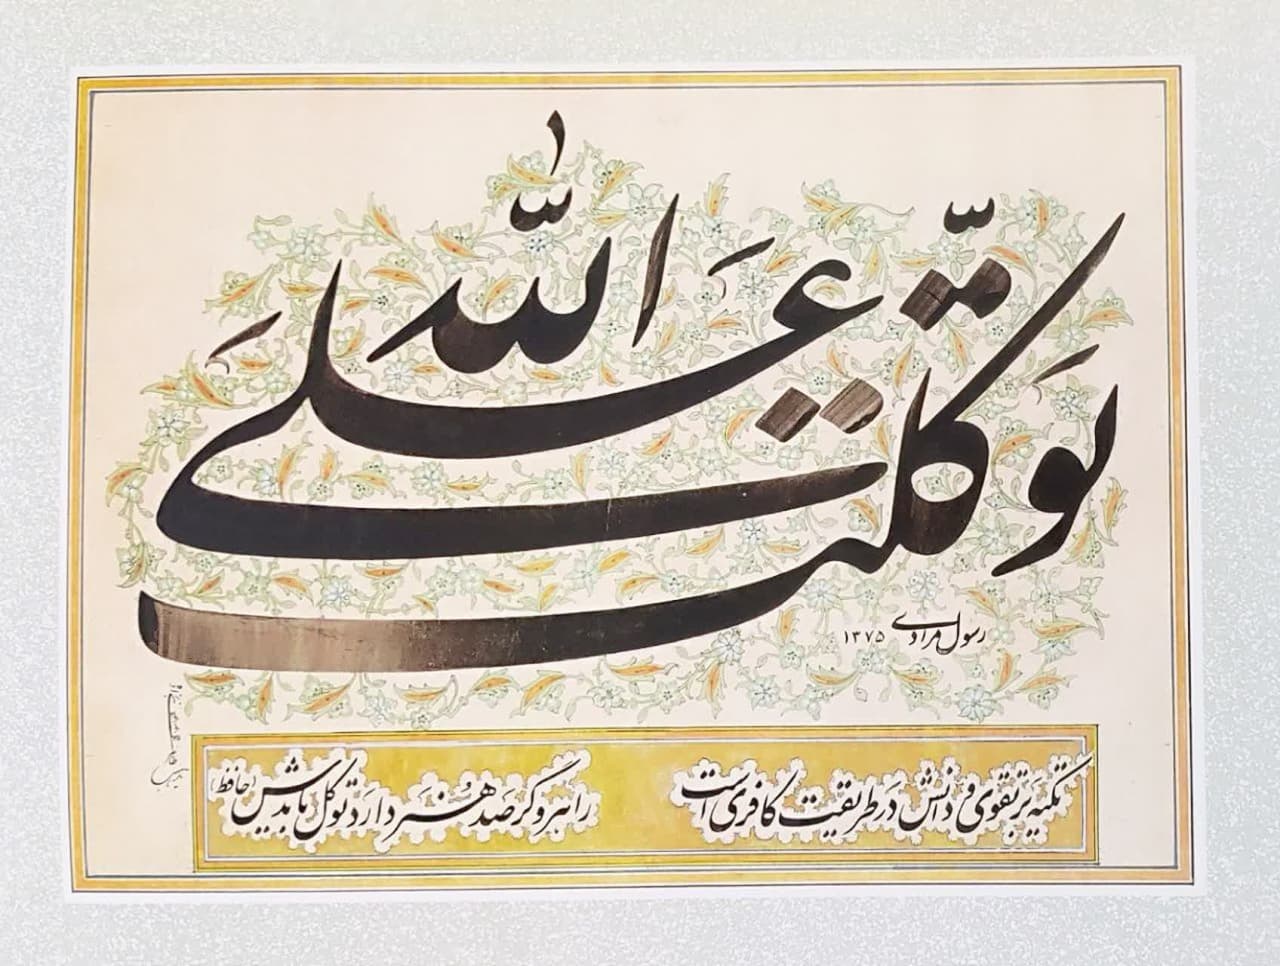 توکّلتُ عَلَی اللّٰه
رسول مرادی ۱۳۷۵
تکیه بر تقوی و دانش در طریقت کافری است
راهرو گر صد هنر دارد توکل بایدش (حافظ)